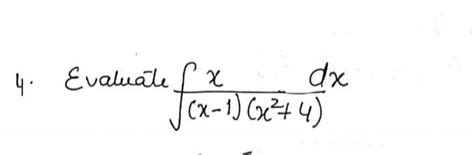 4. Evaluate ∫ x/((x-1)(x²+4)) dx